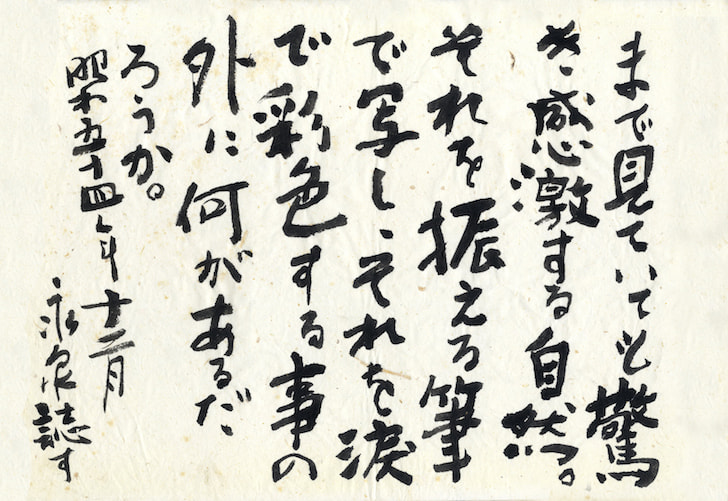 まで見ていても驚
き、感激する自然。
それを振える筆
で写し、それを涙
で彩色する事の
外に何があるだ
ろうか。
昭和五十四年十二月
永泉誌す